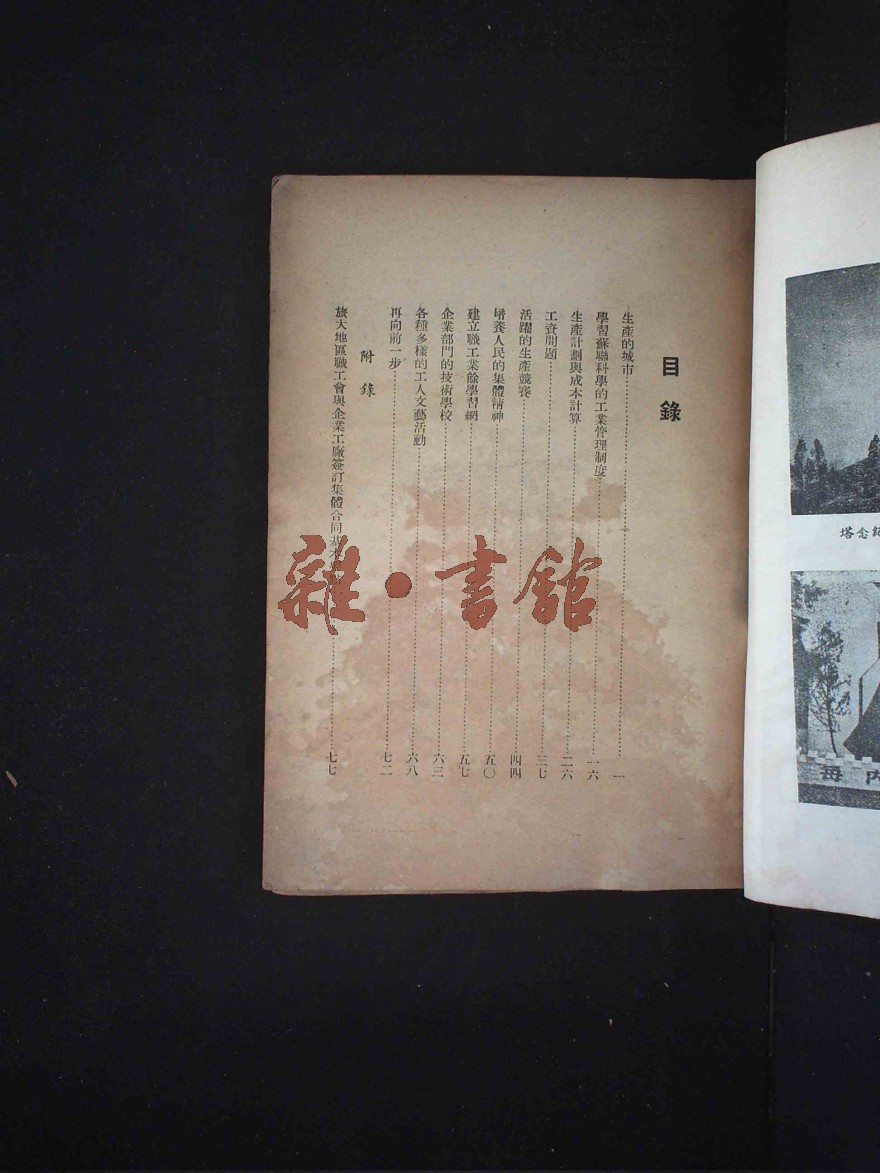 目錄
生產的城市……一
學習蘇聯科學的工業管理制度……一六
生產計劃與成本計算……二六
工資問題……三七
活躍的生產競賽……四四
培養人民的集體精神……五〇
建立職工業餘學習網……五七
企業部門的技術學校……六三
各種多樣的工人文藝活動……六八
再向前一步……七二
附錄
旅大地區職工會與企業工廠簽訂集體合同基本……七七
雜·書館
紀念塔
每內